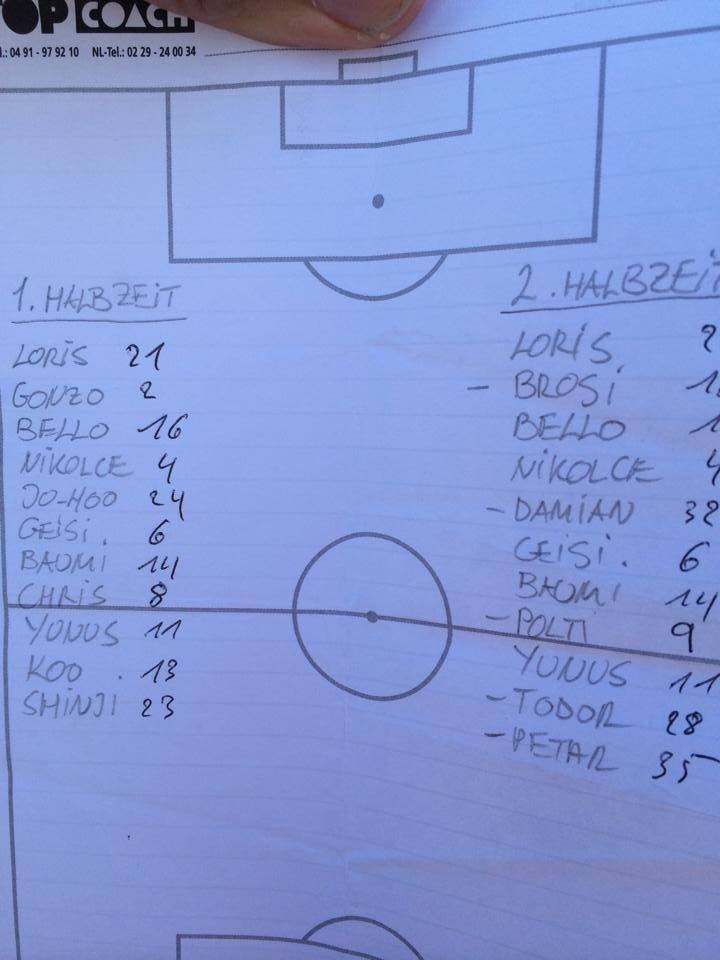 TOP COACH
.: 04 91 - 97 92 10 NL-Tel.: 02 29 - 24 00 34
1. HALBZEIT
LORIS 21
GONZO 2
BELLO 16
NIKOLCE 4
JO-HOO 24
GEISI. 6
BAUMI 14
CHRIS 8
YUNUS 11
KOO . 13
SHINJI 23
2. HALBZEIT
LORIS 2
- BROSI 1
BELLO 1
NIKOLCE 4
- DAMIAN 32
GEISI. 6
BAUMI 14
- POLTI 9
YUNUS 11
- TODOR 28
- PETAR 35